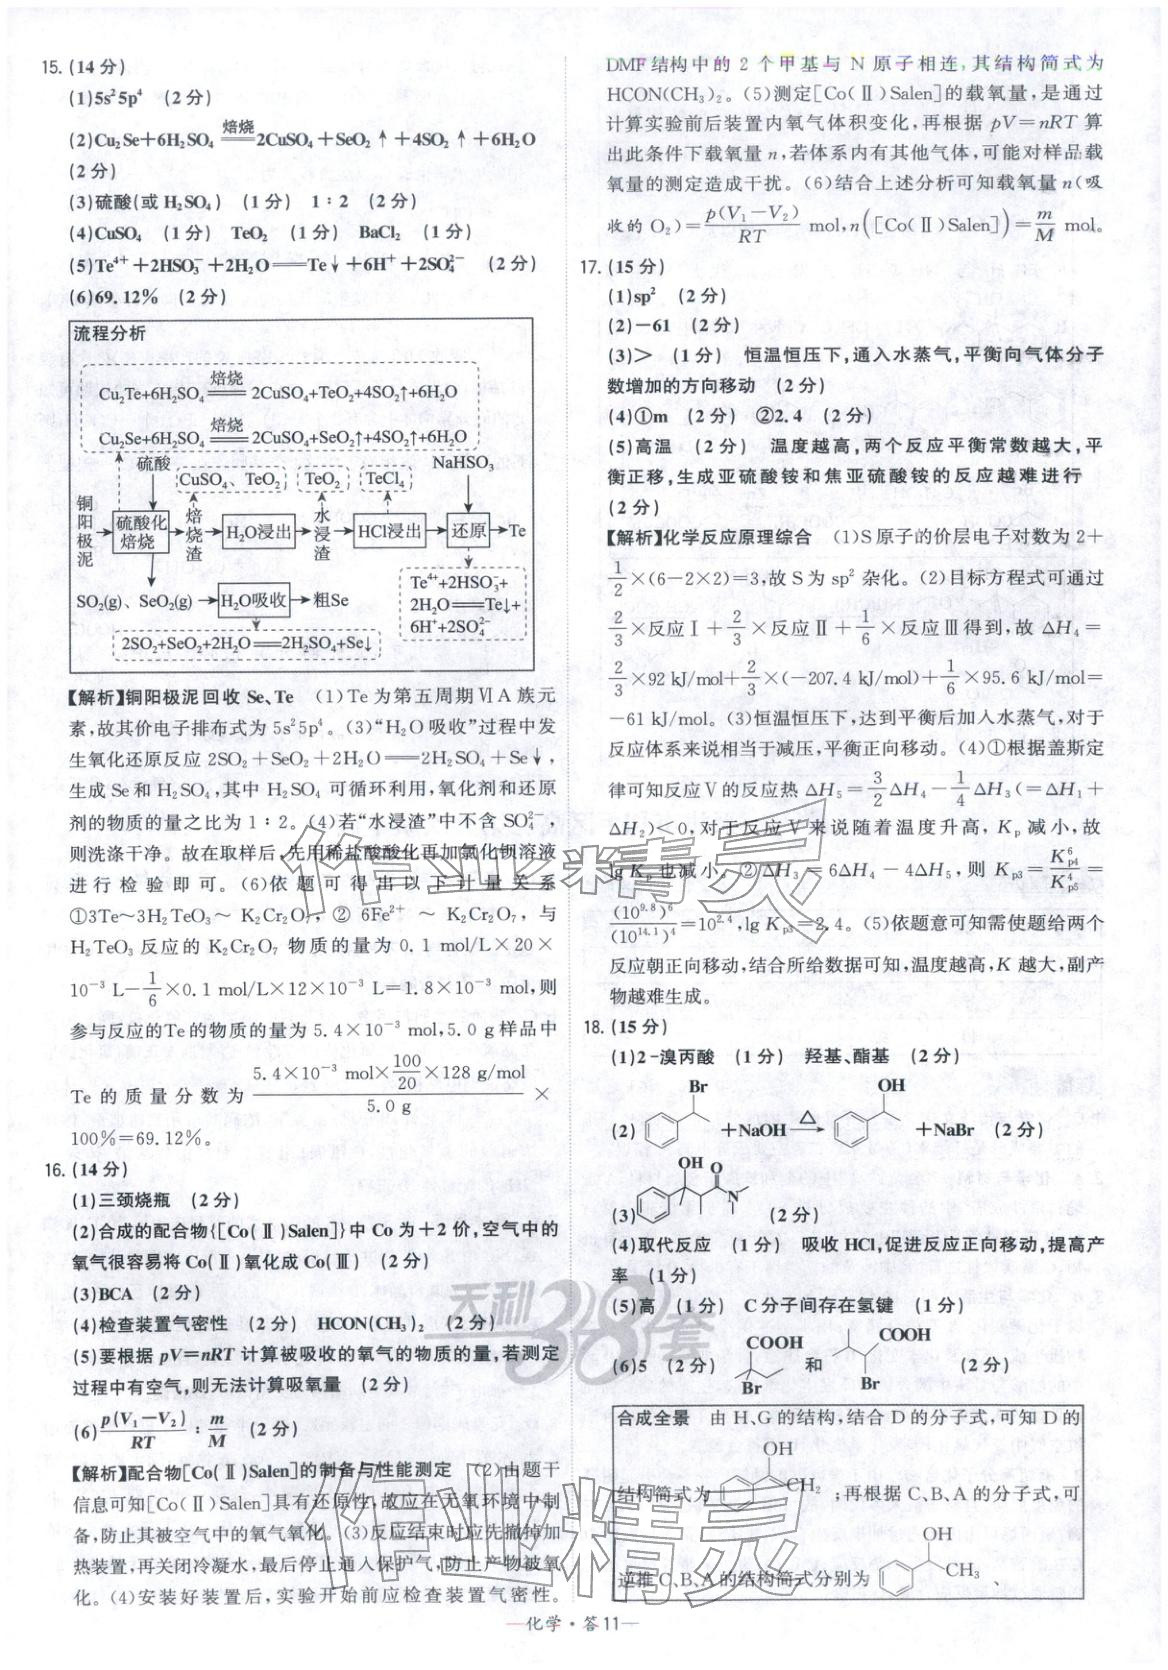 15. (14分)
(1)5s²5p⁴ (2分)
(2)Cu₂Se+6H₂SO₄ =焙烧= 2CuSO₄+SeO₂↑+4SO₂↑+6H₂O
(2分)
(3)硫酸(或H₂SO₄) (1分) 1∶2 (2分)
(4)CuSO₄ (1分) TeO₂ (1分) BaCl₂ (1分)
(5)Te⁴⁺+2HSO₃⁻+2H₂O══Te↓+6H⁺+2SO₄²⁻ (2分)
(6)69.12% (2分)
流程分析
Cu₂Te+6H₂SO₄ =焙烧= 2CuSO₄+TeO₂+4SO₂↑+6H₂O
Cu₂Se+6H₂SO₄ =焙烧= 2CuSO₄+SeO₂↑+4SO₂↑+6H₂O
硫酸 CuSO₄、TeO₂ TeO₂ TeCl₄ NaHSO₃
铜阳极泥 硫酸化焙烧 焙烧渣 H₂O浸出 水浸渣 HCl浸出 还原 Te
SO₂(g)、SeO₂(g) H₂O吸收 粗Se
Te⁴⁺+2HSO₃⁻+
2H₂O══Te↓+
6H⁺+2SO₄²⁻
2SO₂+SeO₂+2H₂O══2H₂SO₄+Se↓
【解析】铜阳极泥回收 Se、Te (1)Te为第五周期ⅥA族元
素,故其价电子排布式为5s²5p⁴。(3)“H₂O吸收”过程中发
生氧化还原反应2SO₂+SeO₂+2H₂O══2H₂SO₄+Se↓,
生成Se和H₂SO₄,其中H₂SO₄可循环利用,氧化剂和还原
剂的物质的量之比为1∶2。(4)若“水浸渣”中不含SO₄²⁻,
则洗涤干净。故在取样后,先用稀盐酸酸化再加氯化钡溶液
进行检验即可。(6)依题可得出以下计量关系
①3Te~3H₂TeO₃~K₂Cr₂O₇,②6Fe²⁺~K₂Cr₂O₇,与
H₂TeO₃反应的K₂Cr₂O₇物质的量为0.1 mol/L×20×
10⁻³ L−1/6×0.1 mol/L×12×10⁻³ L=1.8×10⁻³ mol,则
参与反应的Te的物质的量为5.4×10⁻³ mol,5.0 g样品中
Te的质量分数为 (5.4×10⁻³ mol×100/20×128 g/mol)/5.0 g ×
100%=69.12%。
16. (14分)
(1)三颈烧瓶 (2分)
(2)合成的配合物{[Co(Ⅱ)Salen]}中Co为+2价,空气中的
氧气很容易将Co(Ⅱ)氧化成Co(Ⅲ) (2分)
(3)BCA (2分)
(4)检查装置气密性 (2分) HCON(CH₃)₂ (2分)
(5)要根据pV=nRT计算被吸收的氧气的物质的量,若测定
过程中有空气,则无法计算吸氧量 (2分)
(6)p(V₁−V₂)/RT∶m/M (2分)
【解析】配合物[Co(Ⅱ)Salen]的制备与性能测定 (2)由题干
信息可知[Co(Ⅱ)Salen]具有还原性,故应在无氧环境中制
备,防止其被空气中的氧气氧化。(3)反应结束时应先撤掉加
热装置,再关闭冷凝水,最后停止通入保护气,防止产物被氧
化。(4)安装好装置后,实验开始前应检查装置气密性。
DMF结构中的2个甲基与N原子相连,其结构简式为
HCON(CH₃)₂。(5)测定[Co(Ⅱ)Salen]的载氧量,是通过
计算实验前后装置内氧气体积变化,再根据pV=nRT算
出此条件下载氧量n,若体系内有其他气体,可能对样品载
氧量的测定造成干扰。(6)结合上述分析可知载氧量n(吸
收的O₂)=p(V₁−V₂)/RT mol,n([Co(Ⅱ)Salen])=m/M mol。
17. (15分)
(1)sp² (2分)
(2)−61 (2分)
(3)> (1分) 恒温恒压下,通入水蒸气,平衡向气体分子
数增加的方向移动 (2分)
(4)①m (2分) ②2.4 (2分)
(5)高温 (2分) 温度越高,两个反应平衡常数越大,平
衡正移,生成亚硫酸铵和焦亚硫酸铵的反应越难进行
(2分)
【解析】化学反应原理综合 (1)S原子的价层电子对数为2+
1/2×(6−2×2)=3,故S为sp²杂化。(2)目标方程式可通过
2/3×反应Ⅰ+2/3×反应Ⅱ+1/6×反应Ⅲ得到,故ΔH₄=
2/3×92 kJ/mol+2/3×(−207.4 kJ/mol)+1/6×95.6 kJ/mol=
−61 kJ/mol。(3)恒温恒压下,达到平衡后加入水蒸气,对于
反应体系来说相当于减压,平衡正向移动。(4)①根据盖斯定
律可知反应Ⅴ的反应热ΔH₅=3/2ΔH₄−1/4ΔH₃(=ΔH₁+
ΔH₂)<0,对于反应Ⅴ来说随着温度升高,Kₚ减小,故
lg Kₚ也减小。②ΔH₃=6ΔH₄−4ΔH₅,则Kₚ₃=Kₚ₄⁶/Kₚ₅⁴=
(10⁹·⁸)⁶/(10¹⁴·¹)⁴=10²·⁴,lg Kₚ₃=2.4。(5)依题意可知需使题给两个
反应朝正向移动,结合所给数据可知,温度越高,K越大,副产
物越难生成。
18. (15分)
(1)2-溴丙酸 (1分) 羟基、酯基 (2分)
(2) Br +NaOH △→ OH +NaBr (2分)
(3) OH O N (2分)
(4)取代反应 (1分) 吸收HCl,促进反应正向移动,提高产
率 (1分)
(5)高 (1分) C分子间存在氢键 (1分)
(6)5 (2分) COOH Br 和 COOH Br (2分)
合成全景 由H、G的结构,结合D的分子式,可知D的
结构简式为 OH CH₂ ;再根据C、B、A的分子式,可
逆推C、B、A的结构简式分别为 OH CH₃ 、
—化学·答11—
作业精灵
天利38套
作业精灵